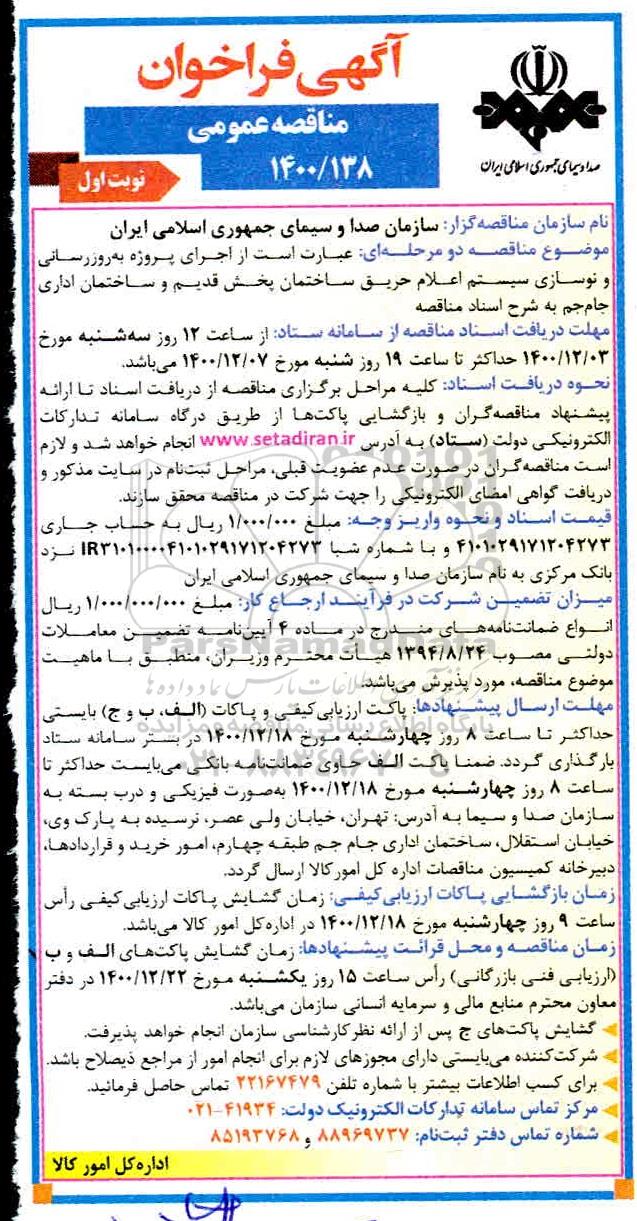 آگهی فراخوان
مناقصه عمومی
۱۴۰۰/۱۳۸
نوبت اول
صدا و سیمای جمهوری اسلامی ایران
نام سازمان مناقصه‌گزار: سازمان صدا و سیمای جمهوری اسلامی ایران
موضوع مناقصه دو مرحله‌ای: عبارت است از اجرای پروژه به‌روزرسانی
و نوسازی سیستم اعلام حریق ساختمان پخش قدیم و ساختمان اداری
جام‌جم به شرح اسناد مناقصه
مهلت دریافت اسناد مناقصه از سامانه ستاد: از ساعت ۱۲ روز سه‌شنبه مورخ
۱۴۰۰/۱۲/۰۳ حداکثر تا ساعت ۱۹ روز شنبه مورخ ۱۴۰۰/۱۲/۰۷ می‌باشد.
نحوه دریافت اسناد: کلیه مراحل برگزاری مناقصه از دریافت اسناد تا ارائه
پیشنهاد مناقصه‌گران و بازگشایی پاکت‌ها از طریق درگاه سامانه تدارکات
الکترونیکی دولت (ستاد) به آدرس www.setadiran.ir انجام خواهد شد و لازم
است مناقصه‌گران در صورت عدم عضویت قبلی، مراحل ثبت‌نام در سایت مذکور و
دریافت گواهی امضای الکترونیکی را جهت شرکت در مناقصه محقق سازند.
قیمت اسناد و نحوه واریز وجه: مبلغ ۱/۰۰۰/۰۰۰ ریال به حساب جاری
۴۱۰۱۰۲۹۱۷۱۲۰۴۲۷۳ و با شماره شبا IR۳۱۰۱۰۰۰۰۴۱۰۱۰۲۹۱۷۱۲۰۴۲۷۳ نزد
بانک مرکزی به نام سازمان صدا و سیمای جمهوری اسلامی ایران
میزان تضمین شرکت در فرآیند ارجاع کار: مبلغ ۱/۰۰۰/۰۰۰/۰۰۰ ریال
انواع ضمانت‌نامه‌های مندرج در ماده ۴ آیین‌نامه تضمین معاملات
دولتی مصوب ۱۳۹۴/۸/۲۴ هیات محترم وزیران، منطبق با ماهیت
موضوع مناقصه، مورد پذیرش می‌باشد.
مهلت ارسال پیشنهادها: پاکت ارزیابی‌کیفی و پاکات (الف، ب و ج) بایستی
حداکثر تا ساعت ۸ روز چهارشنبه مورخ ۱۴۰۰/۱۲/۱۸ در بستر سامانه ستاد
بارگذاری گردد. ضمنا پاکت الف حاوی ضمانت‌نامه بانکی می‌بایست حداکثر تا
ساعت ۸ روز چهارشنبه مورخ ۱۴۰۰/۱۲/۱۸ به‌صورت فیزیکی و درب بسته به
سازمان صدا و سیما به آدرس: تهران، خیابان ولی عصر، نرسیده به پارک وی،
خیابان استقلال، ساختمان اداری جام جم طبقه چهارم، امور خرید و قراردادها،
دبیرخانه کمیسیون مناقصات اداره کل امورکالا ارسال گردد.
زمان بازگشایی پاکات ارزیابی‌کیفی: زمان گشایش پاکات ارزیابی‌کیفی رأس
ساعت ۹ روز چهارشنبه مورخ ۱۴۰۰/۱۲/۱۸ در اداره‌کل امور کالا می‌باشد.
زمان مناقصه و محل قرائت پیشنهادها: زمان گشایش پاکت‌های الف و ب
(ارزیابی فنی بازرگانی) رأس ساعت ۱۵ روز یکشنبه مورخ ۱۴۰۰/۱۲/۲۲ در دفتر
معاون محترم منابع مالی و سرمایه انسانی سازمان می‌باشد.
گشایش پاکت‌های ج پس از ارائه نظر کارشناسی سازمان انجام خواهد پذیرفت.
شرکت‌کننده می‌بایستی دارای مجوزهای لازم برای انجام امور از مراجع ذیصلاح باشد.
برای کسب اطلاعات بیشتر با شماره تلفن ۲۲۱۶۷۴۷۹ تماس حاصل فرمائید.
مرکز تماس سامانه تدارکات الکترونیک دولت: ۴۱۹۳۴-۰۲۱
شماره تماس دفتر ثبت‌نام: ۸۸۹۶۹۷۳۷ و ۸۵۱۹۳۷۶۸
اداره‌کل امور کالا
ParsNamadData